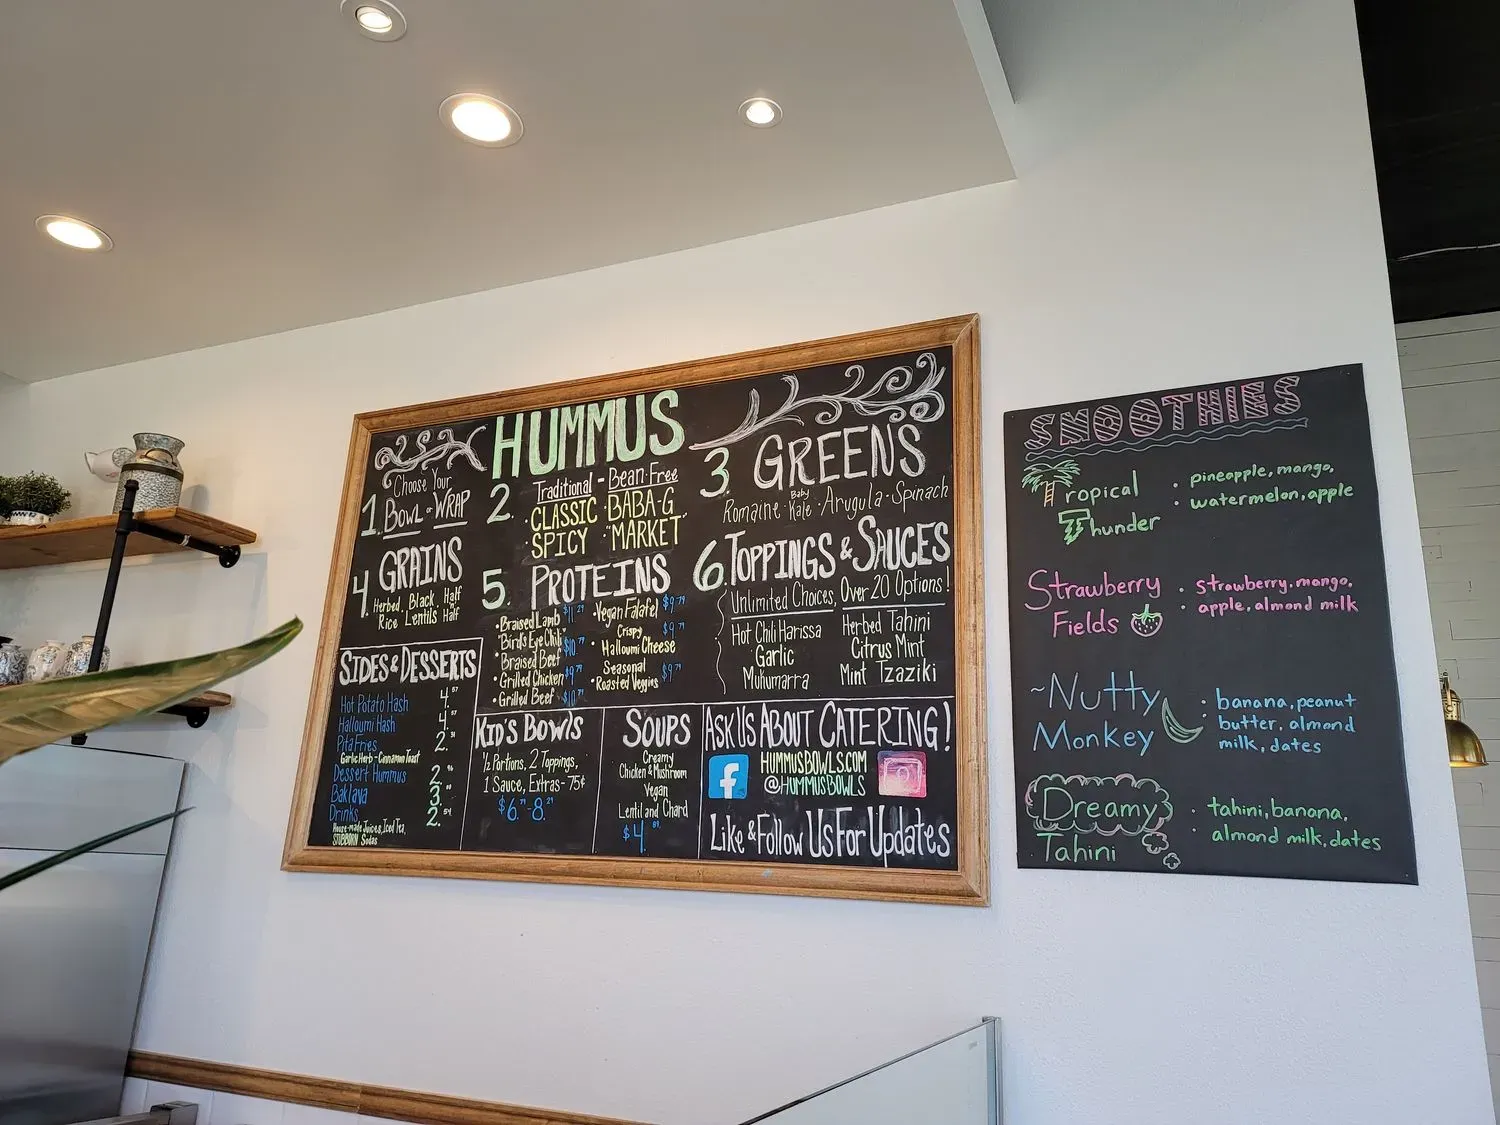 HUMMUS
Choose Your
1. BOWL or WRAP
2. Traditional - Bean-Free
· CLASSIC · BABA-G
· SPICY · "MARKET"
3. GREENS
Romaine · Baby Kale · Arugula · Spinach
4. GRAINS
Herbed Black Half
Rice Lentils Half
5. PROTEINS
· Braised Lamb
· "Bird's Eye Chili"
Braised Beef
· Grilled Chicken $9.79
· Grilled Beef
· Vegan Falafel $9.79
· Crispy
Halloumi Cheese $9.79
· Seasonal
Roasted Veggies $9.79
6. TOPPINGS & SAUCES
Unlimited Choices, Over 20 Options!
Hot Chili Harissa
Garlic
Muhumarra
Herbed Tahini
Citrus Mint
Mint Tzaziki
SIDES & DESSERTS
Hot Potato Hash 4.
Halloumi Hash 4.
Pita Fries 2.
Garlic Herb - Cinnamon Toast
Dessert Hummus 2.
Baklava 3.
Drinks 2.
House-made Juices, Iced Tea,
STUBBORN Sodas
KID'S BOWLS
½ Portions, 2 Toppings,
1 Sauce, Extras - 75¢
SOUPS
Creamy
Chicken & Mushroom
Vegan
Lentil and Chard
$4.
ASK US ABOUT CATERING!
HUMMUSBOWLS.COM
@HUMMUSBOWLS
Like & Follow Us For Updates
SMOOTHIES
Tropical
Thunder
· pineapple, mango,
· watermelon, apple
Strawberry
Fields
· strawberry, mango,
· apple, almond milk
~Nutty
Monkey
· banana, peanut
· butter, almond
milk, dates
Dreamy
Tahini
· tahini, banana,
· almond milk, dates